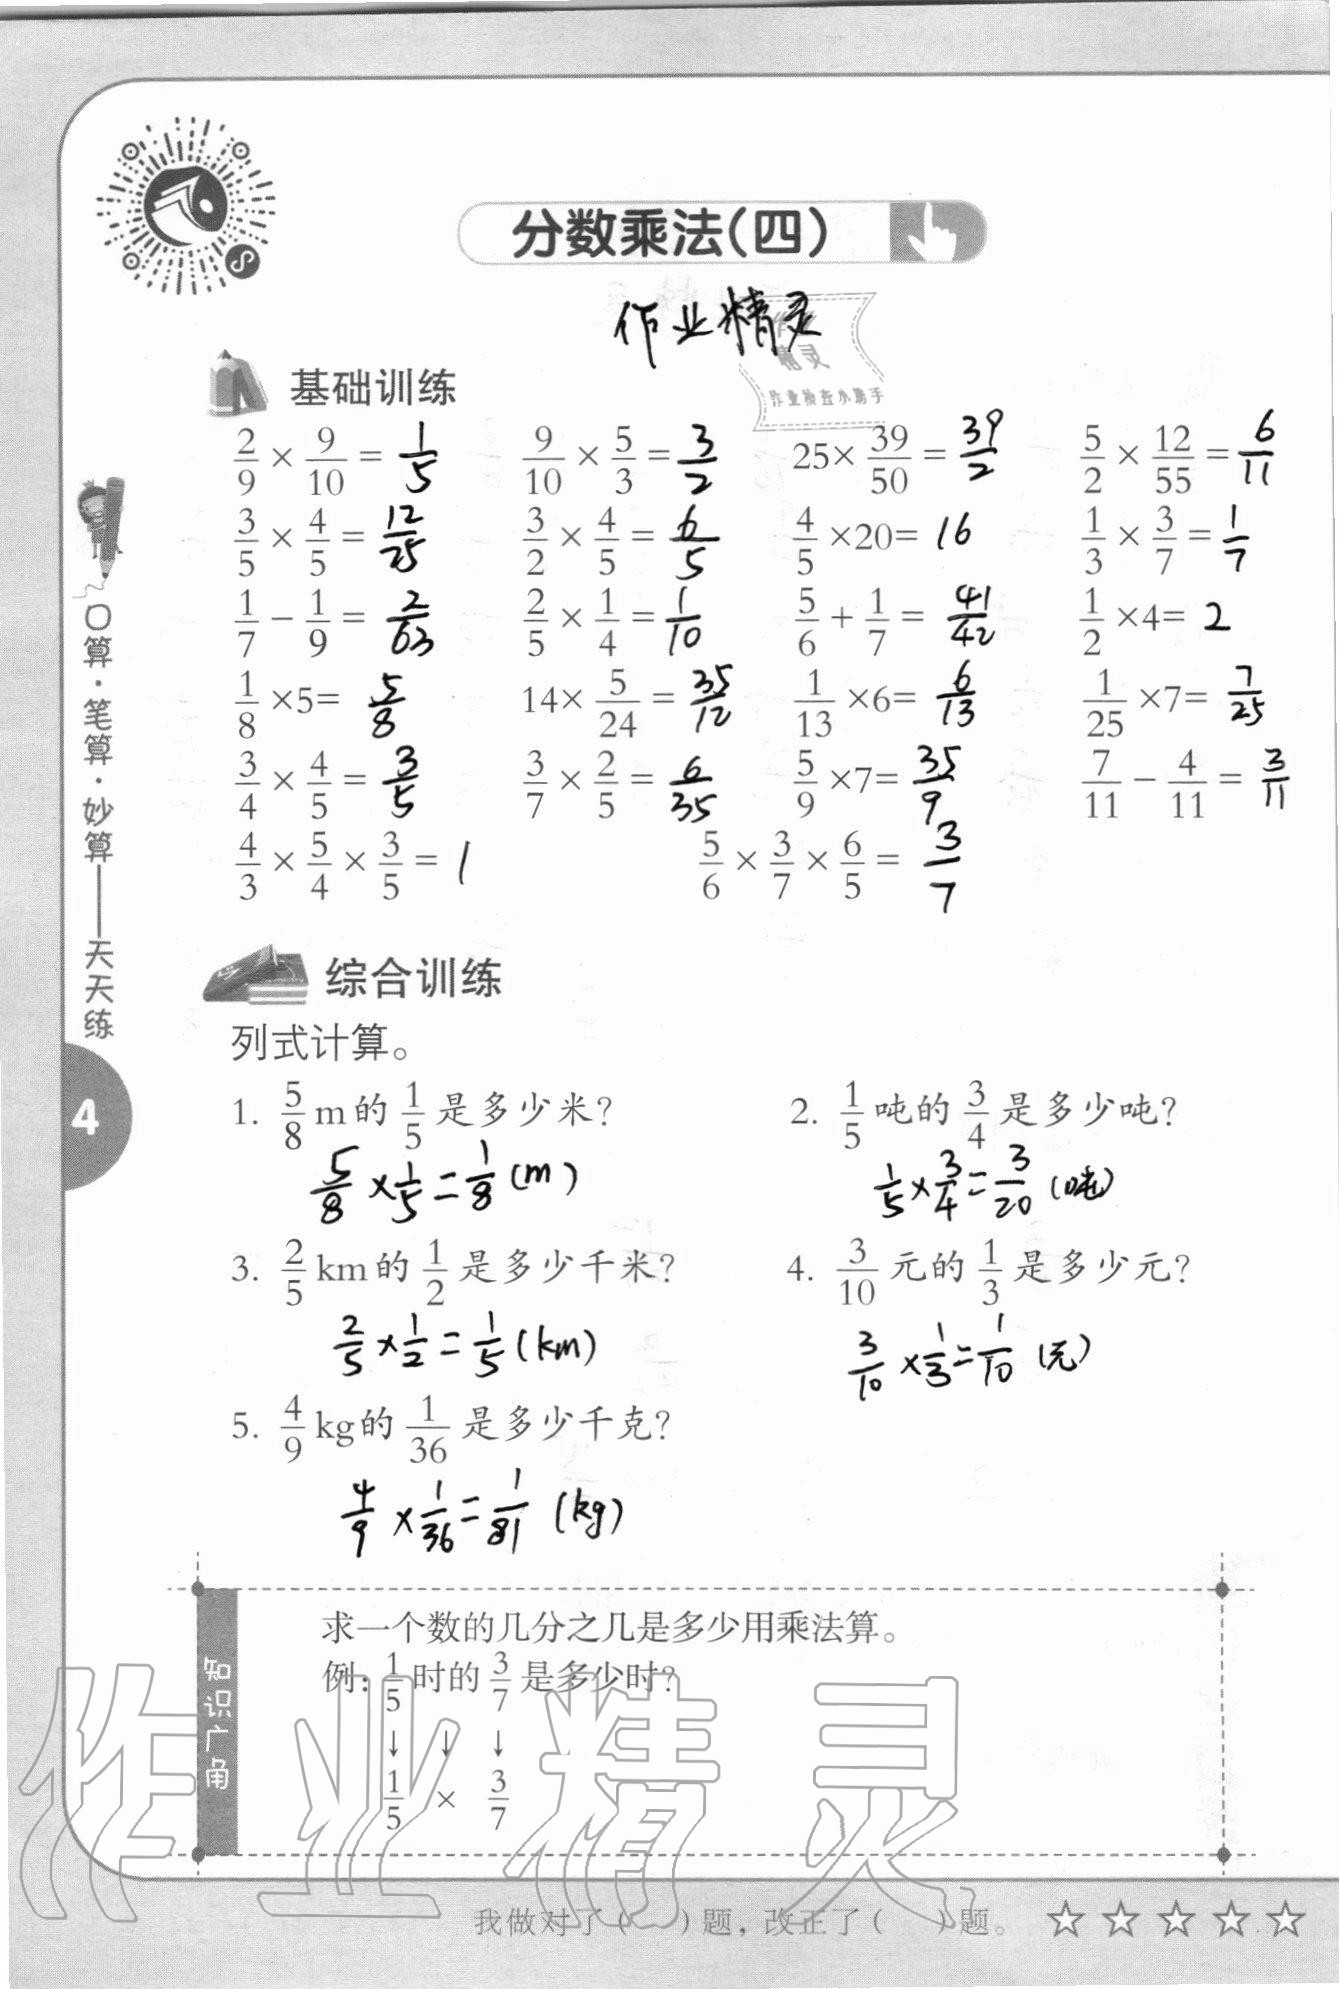 分数乘法(四)
作业精灵
作业
精灵
作业检查小助手
基础训练
2/9 × 9/10 = 1/5  9/10 × 5/3 = 3/2  25× 39/50 = 39/2  5/2 × 12/55 = 6/11
3/5 × 4/5 = 12/25  3/2 × 4/5 = 6/5  4/5 ×20= 16  1/3 × 3/7 = 1/7
1/7 − 1/9 = 2/63  2/5 × 1/4 = 1/10  5/6 + 1/7 = 41/42  1/2 ×4= 2
1/8 ×5= 5/8  14× 5/24 = 35/12  1/13 ×6= 6/13  1/25 ×7= 7/25
3/4 × 4/5 = 3/5  3/7 × 2/5 = 6/35  5/9 ×7= 35/9  7/11 − 4/11 = 3/11
4/3 × 5/4 × 3/5 = 1  5/6 × 3/7 × 6/5 = 3/7
口算·笔算·妙算——天天练
4
综合训练
列式计算。
1. 5/8 m的 1/5 是多少米?  2. 1/5 吨的 3/4 是多少吨?
5/8 × 1/5 = 1/8 (m)  1/5 × 3/4 = 3/20 (吨)
3. 2/5 km的 1/2 是多少千米?  4. 3/10 元的 1/3 是多少元?
2/5 × 1/2 = 1/5 (km)  3/10 × 1/3 = 1/10 (元)
5. 4/9 kg的 1/36 是多少千克?
4/9 × 1/36 = 1/81 (kg)
知识广角
求一个数的几分之几是多少用乘法算。
例: 1/5 时的 3/7 是多少时?
↓ ↓ ↓
1/5 × 3/7
作业精灵
我做对了(  )题，改正了(  )题。 ☆☆☆☆☆